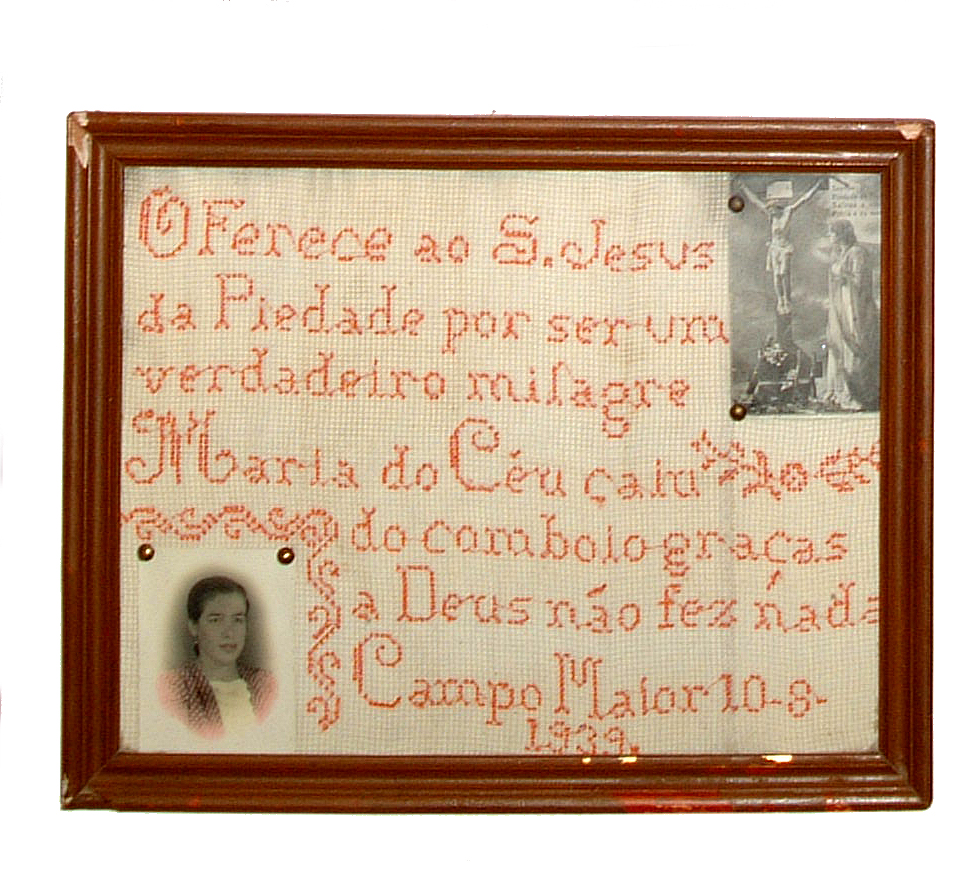 OFerece ao S. Jesus
da Piedade por ser um
verdadeiro milagre
Maria do Céu caiu
do comboio graças
a Deus não fez nada
Campo Maior 10-8-
1939.